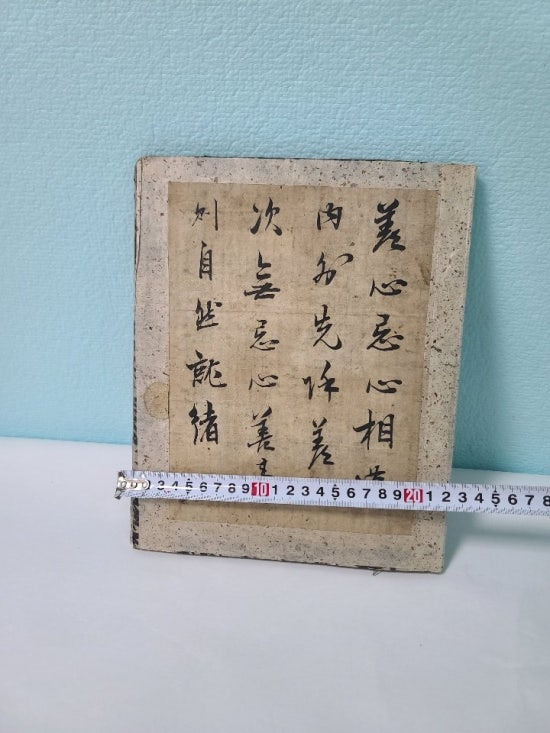 差心忌心相
内外先除差
次無忌心善
則自然就緒
3 4 5 6 7 8 9 10 1 2 3 4 5 6 7 8 9 20 1 2 3 4 5 6 7 8